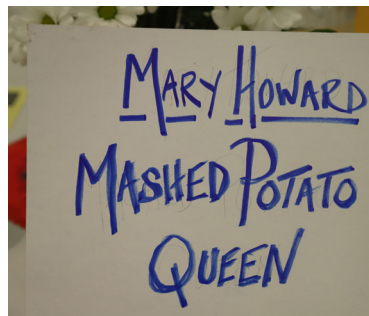 MARY HOWARD
MASHED POTATO
QUEEN